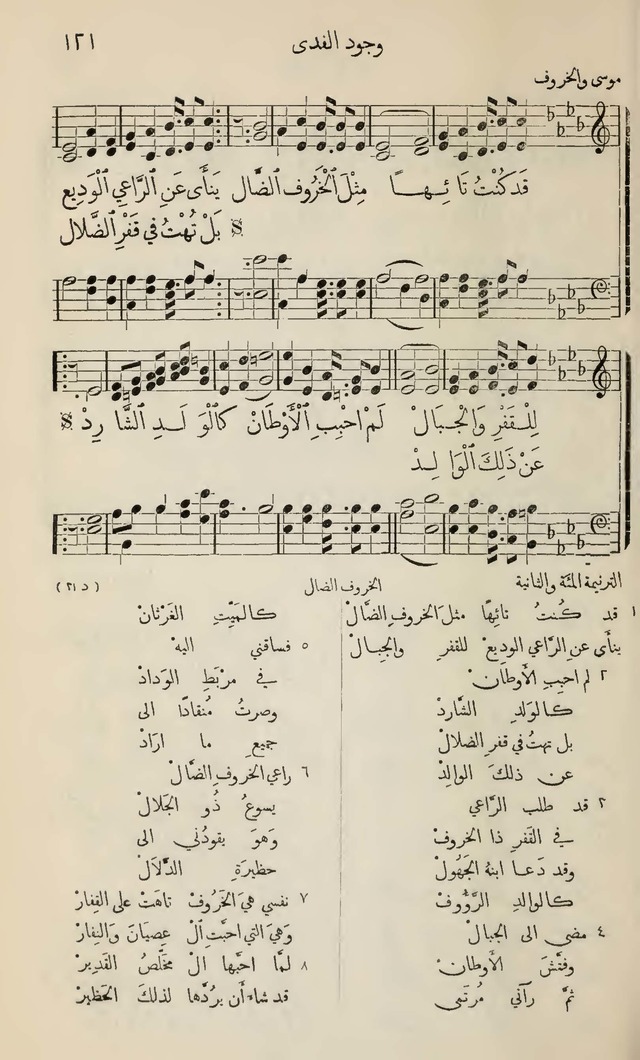 وجود الفدى
١٢١
موسى والخروف
قَدْ كُنْتُ تَائِهًا مِثْلَ ٱلْخَرُوفِ ٱلضَّالّ يَنْأَى عَنِ ٱلرَّاعِي ٱلْوَدِيعِ
بَلْ تُهْتُ فِي قَفْرِ ٱلضَّلَال
لِلْقَفْرِ وَٱلْجِبَالْ لَمْ احْبِبِ ٱلْأَوْطَانْ كَٱلْوَلَدِ ٱلشَّارِدْ
عَنْ ذٰلِكَ ٱلْوَالِدْ
الترنيمة المئة والثانية
الخروف الضال
(د ٢١)
١ قد كُنتُ تائِهًا مثلَ الخروفِ الضَّالْ
ينأَى عنِ الرَّاعي الوديعْ للقفرِ والجِبالْ
٢ لم احبِبِ الأَوطانْ
كالوَلَدِ الشَّاردْ
بل تهتُ في قفرِ الضلالْ
عن ذلكَ الوالدْ
٣ قد طلب الرَّاعي
في القَفرِ ذا الخروفْ
وقد دَعا ابنهُ الجَهُولْ
كالوالدِ الرَّؤُوفْ
٤ مضى الى الجبالْ
وفتَّشَ الأَوطانْ
ثمَّ رآني مُرتمى
كالمَيْتِ الغَرْثانْ
٥ فساقني اليهْ
في مرْبَطِ الوَدادْ
وصرتُ مُنقادًا الى
جميعِ ما ارَادْ
٦ راعي الخروفِ الضَّالْ
يسوعُ ذُو الجَلالْ
وَهوَ يقودُني الى
حظيرَةِ الدَّلَالْ
٧ نفسي هيَ الخَرُوفْ تاهَتْ على القِفار
وَهيَ التي احبَّتِ الْ عِصيَانَ وَالنِفار
٨ لمَّا احبَّها الْ مخلِّصُ القَدِيرْ
قد شاءَ أَن يرُدَّها لذلكَ الحَظيرْ